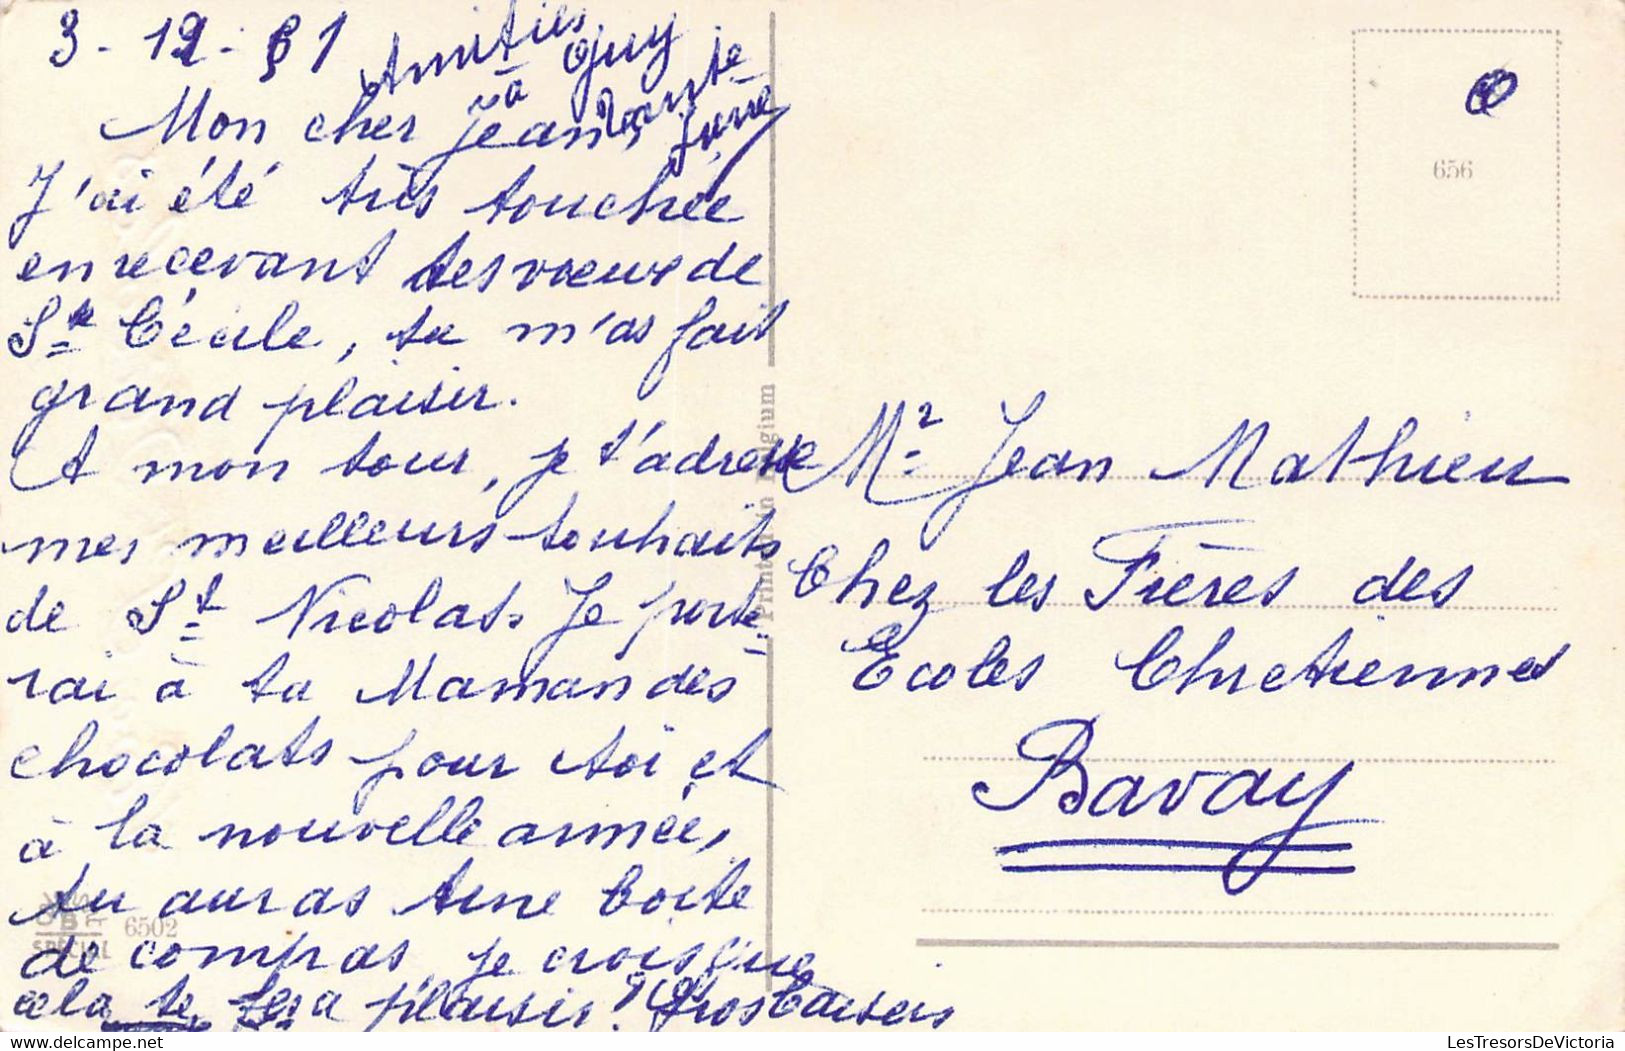 3-12-61
Amitiés
à Guy
Mon cher Jean,
J'ai été très touchée
en recevant tes voeux de
Ste Cécile, tu m'as fait
grand plaisir.
A mon tour, je t'adresse
mes meilleurs souhaits
de St Nicolas. Je porte-
rai à ta Maman des
chocolats pour toi et
à la nouvelle année,
tu auras une boîte
de compas, je crois que
cela te fera plaisir! Gros baisers
656
Mr Jean Mathieu
Chez les Frères des
Ecoles Chretiennes
Bavay
Printed in Belgium
6502
SPECIAL
LesTresorsDeVictoria